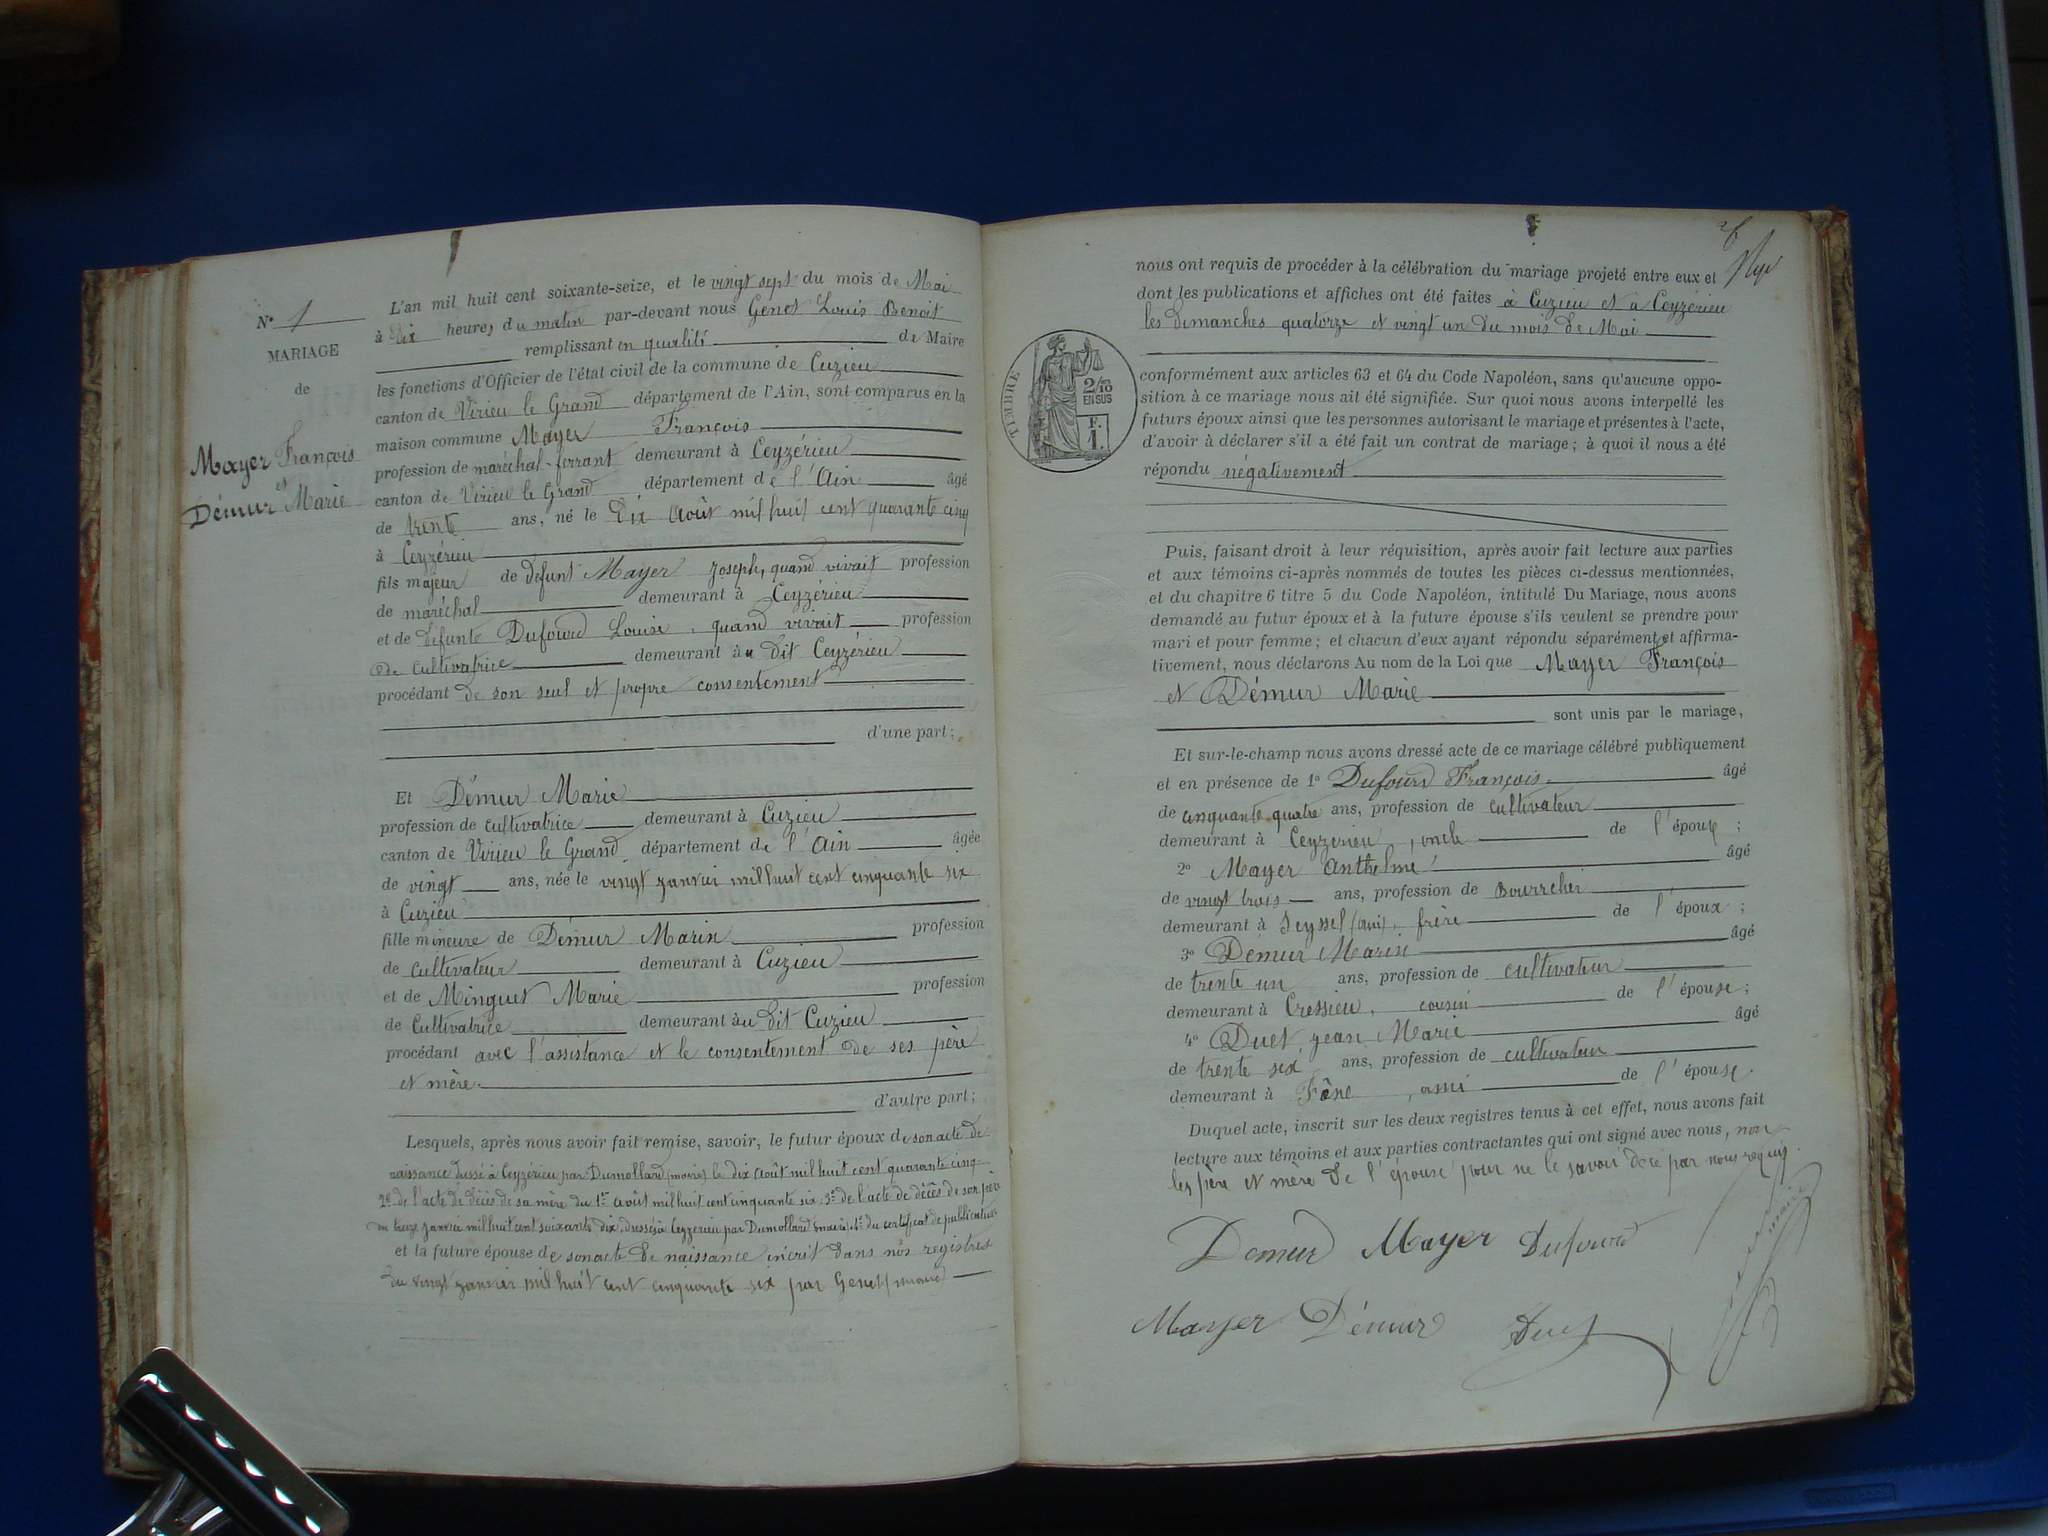 N° 1
MARIAGE
de
Mayer François
et
Démur Marie
L'an mil huit cent soixante-seize, et le vingt sept du mois de Mai
à dix heures du matin par-devant nous Genet Louis Benoit
remplissant en qualité de Maire
les fonctions d'Officier de l'état civil de la commune de Cuzieu
canton de Virieu le Grand département de l'Ain, sont comparus en la
maison commune Mayer François
profession de maréchal-ferrant demeurant à Ceyzérieu
canton de Virieu le Grand département de l'Ain âgé
de trente ans, né le dix Août mil huit cent quarante cinq
à Ceyzérieu
fils majeur de defunt Mayer Joseph, quand vivait profession
de maréchal demeurant à Ceyzérieu
et de defunte Dufourd Louise, quand vivait profession
de cultivatrice demeurant au dit Ceyzérieu
procédant de son seul et propre consentement
d'une part;
Et Démur Marie
profession de cultivatrice demeurant à Cuzieu
canton de Virieu le Grand département de l'Ain âgée
de vingt ans, née le vingt janvier mil huit cent cinquante six
à Cuzieu
fille mineure de Démur Marin profession
de cultivateur demeurant à Cuzieu
et de Minguet Marie profession
de Cultivatrice demeurant au dit Cuzieu
procédant avec l'assistance et le consentement de ses père
et mère.
d'autre part;
Lesquels, après nous avoir fait remise, savoir, le futur époux de son acte de
naissance dressé à Ceyzérieu par Dumollard (maire) le dix Août mil huit cent quarante cinq
2° de l'acte de décès de sa mère du 1er Août mil huit cent cinquante six; 3° de l'acte de décès de son père
du treize janvier mil huit cent soixante dix, dressé à Ceyzérieu par Dumollard (maire), 4° du certificat de publication
et la future épouse de son acte de naissance inscrit dans nos registres
du vingt janvier mil huit cent cinquante six par Genet (maire)
nous ont requis de procéder à la célébration du mariage projeté entre eux et
dont les publications et affiches ont été faites à Cuzieu et à Ceyzérieu
les dimanches quatorze et vingt un du mois de Mai
TIMBRE
2/10
EN SUS
F.
1.
conformément aux articles 63 et 64 du Code Napoléon, sans qu'aucune oppo-
sition à ce mariage nous ait été signifiée. Sur quoi nous avons interpellé les
futurs époux ainsi que les personnes autorisant le mariage et présentes à l'acte,
d'avoir à déclarer s'il a été fait un contrat de mariage; à quoi il nous a été
répondu négativement
Puis, faisant droit à leur réquisition, après avoir fait lecture aux parties
et aux témoins ci-après nommés de toutes les pièces ci-dessus mentionnées,
et du chapitre 6 titre 5 du Code Napoléon, intitulé Du Mariage, nous avons
demandé au futur époux et à la future épouse s'ils veulent se prendre pour
mari et pour femme; et chacun d'eux ayant répondu séparément et affirma-
tivement, nous déclarons Au nom de la Loi que Mayer François
et Démur Marie
sont unis par le mariage,
Et sur-le-champ nous avons dressé acte de ce mariage célébré publiquement
et en présence de 1° Dufourd François âgé
de cinquante quatre ans, profession de cultivateur
demeurant à Ceyzerieu, oncle de l'époux;
2° Mayer Anthelme âgé
de vingt trois ans, profession de Bourrelier
demeurant à Seyssel (Ain), frère de l'époux;
3° Démur Marin âgé
de trente un ans, profession de cultivateur
demeurant à Cressieu, cousin de l'épouse;
4° Duet Jean Marie âgé
de trente six ans, profession de cultivateur
demeurant à Fâne, ami de l'épouse.
Duquel acte, inscrit sur les deux registres tenus à cet effet, nous avons fait
lecture aux témoins et aux parties contractantes qui ont signé avec nous, non
les père et mère de l'épouse pour ne le savoir de ce par nous requis.
Demur Mayer Dufourd
maire
Mayer Démur Duet